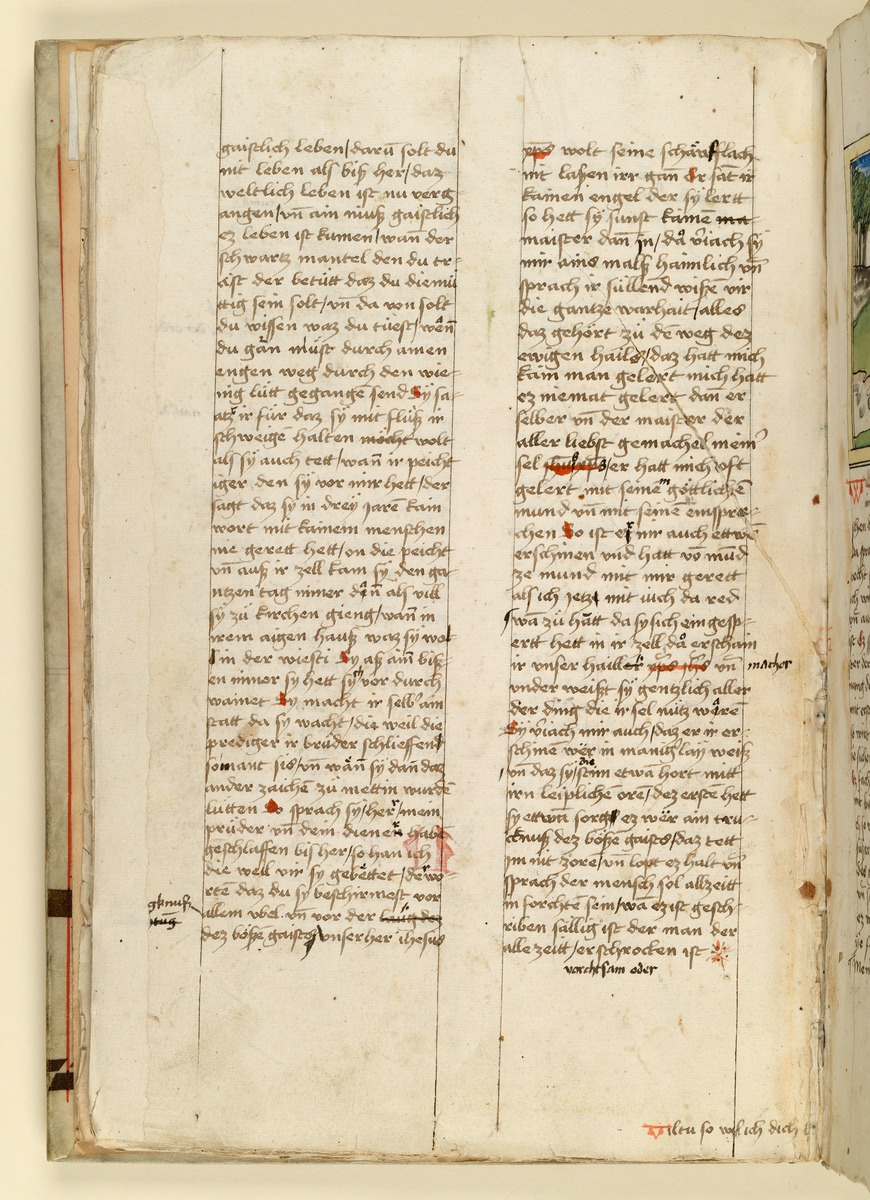 gaistlich leben/darū solt du
nit leben als biß her/daz
weltlich leben ist nu verg-
angen/vn̄ ain nuͤß gaistlich
ez leben ist kumen/wan̄ der
schwartz mantel den du tr-
aͤst der betütt daz du diemuͤ
ttig sein solt/vn̄ da von solt
du wissen waz du tuest/wen̄
du gan muͤst durch ainen
engen weg durch den wie-
nig lütt gegangē send Sÿ sa-
atz ir für daz sÿ mit flüß ir
schweigē halten möcht wolt
als sÿ auch tett/wan̄ ir peicht
iger den sÿ vor mir hett/der
sagt daz sÿ in dreÿ Jarē kain
wort mit kainem menschen
nie gerett hett/on die peicht
vn̄ auß ir zell kam sÿ den ga-
ntzen tag nimer dan̄ als vill
sÿ zü kirchen gieng/wan̄ in
irem aigen hauß waz sÿ wol
in der wiesti Sy aß ain̄ biß-
en nimer sy hett sÿ vor durch
wainet Sy macht ir selb ain
statt da sÿ wacht/die weil die
prediger ir brüder schlieffend
so mant sis/vn̄ wan̄ sÿ dan̄ daz
ander zaichē zu mettin wurdē
lütten So sprach sÿ/her/mein
prüder vn̄ dein diener habē
geschlaffen bis her/so han ich
die weil vir sy gebettet/de wo
rtē daz du sy beschirmest vor
allem vbel vn̄ vor der
gknuß
dez böße gaistz/vnser her ihesus
xp̄s wolt seine schäfflach
nit laßen irr gan Er sāt ir
kainen engel der sÿ lertt
so hett sÿ sunst kainē ma-
maister dan̄ in/da v̄iach sÿ
mir ains malß haimlich vn̄
sprach ir süllend wißē vir
die gantze warhait/alles
daz gehört zü dē weg dez
ewigen hailes/daz hatt mich
kain man gelert mich hatt
ez niemat gelert dan̄ er
selber vn̄ der maister der
aller liebst gemachel mein
sel /er hatt mich oft
gelert mit seinē göttlichē
mund vn̄ mit seinē einspre-
chen So ist er mir auch ettwē
erschinen vnd hatt vō mūd
ze mund mit mir gerett
als ich Jetz mit üch da red
wā zü hātt da sy sich ein gesp-
ertt hett in ir zell/da erschain
ir vnser hailler xp̄s ih̄s vn̄ macher
vnder weißt sÿ gentzlich aller
der ding die ir sel nütz werē
Sÿ v̄iach mir auch/daz er ir er-
schine wer in manig lay weiß
vn̄ daz sÿ/die stim etwā hort mitt
irn leiplichē orē/dez erste hett
sy ettwa sorg ez wer am tru-
cknuß dez böße gaists/daz tett
im nit zorē/vn̄ lopt ez halt vn̄
sprach der mensch sol allzeitt
in forchtē sein/wā ez ist gesch-
riben sällig ist der man der
alle zeitt/erschrocken ist
vorchtsam oder
Wiltu so wil ich dich